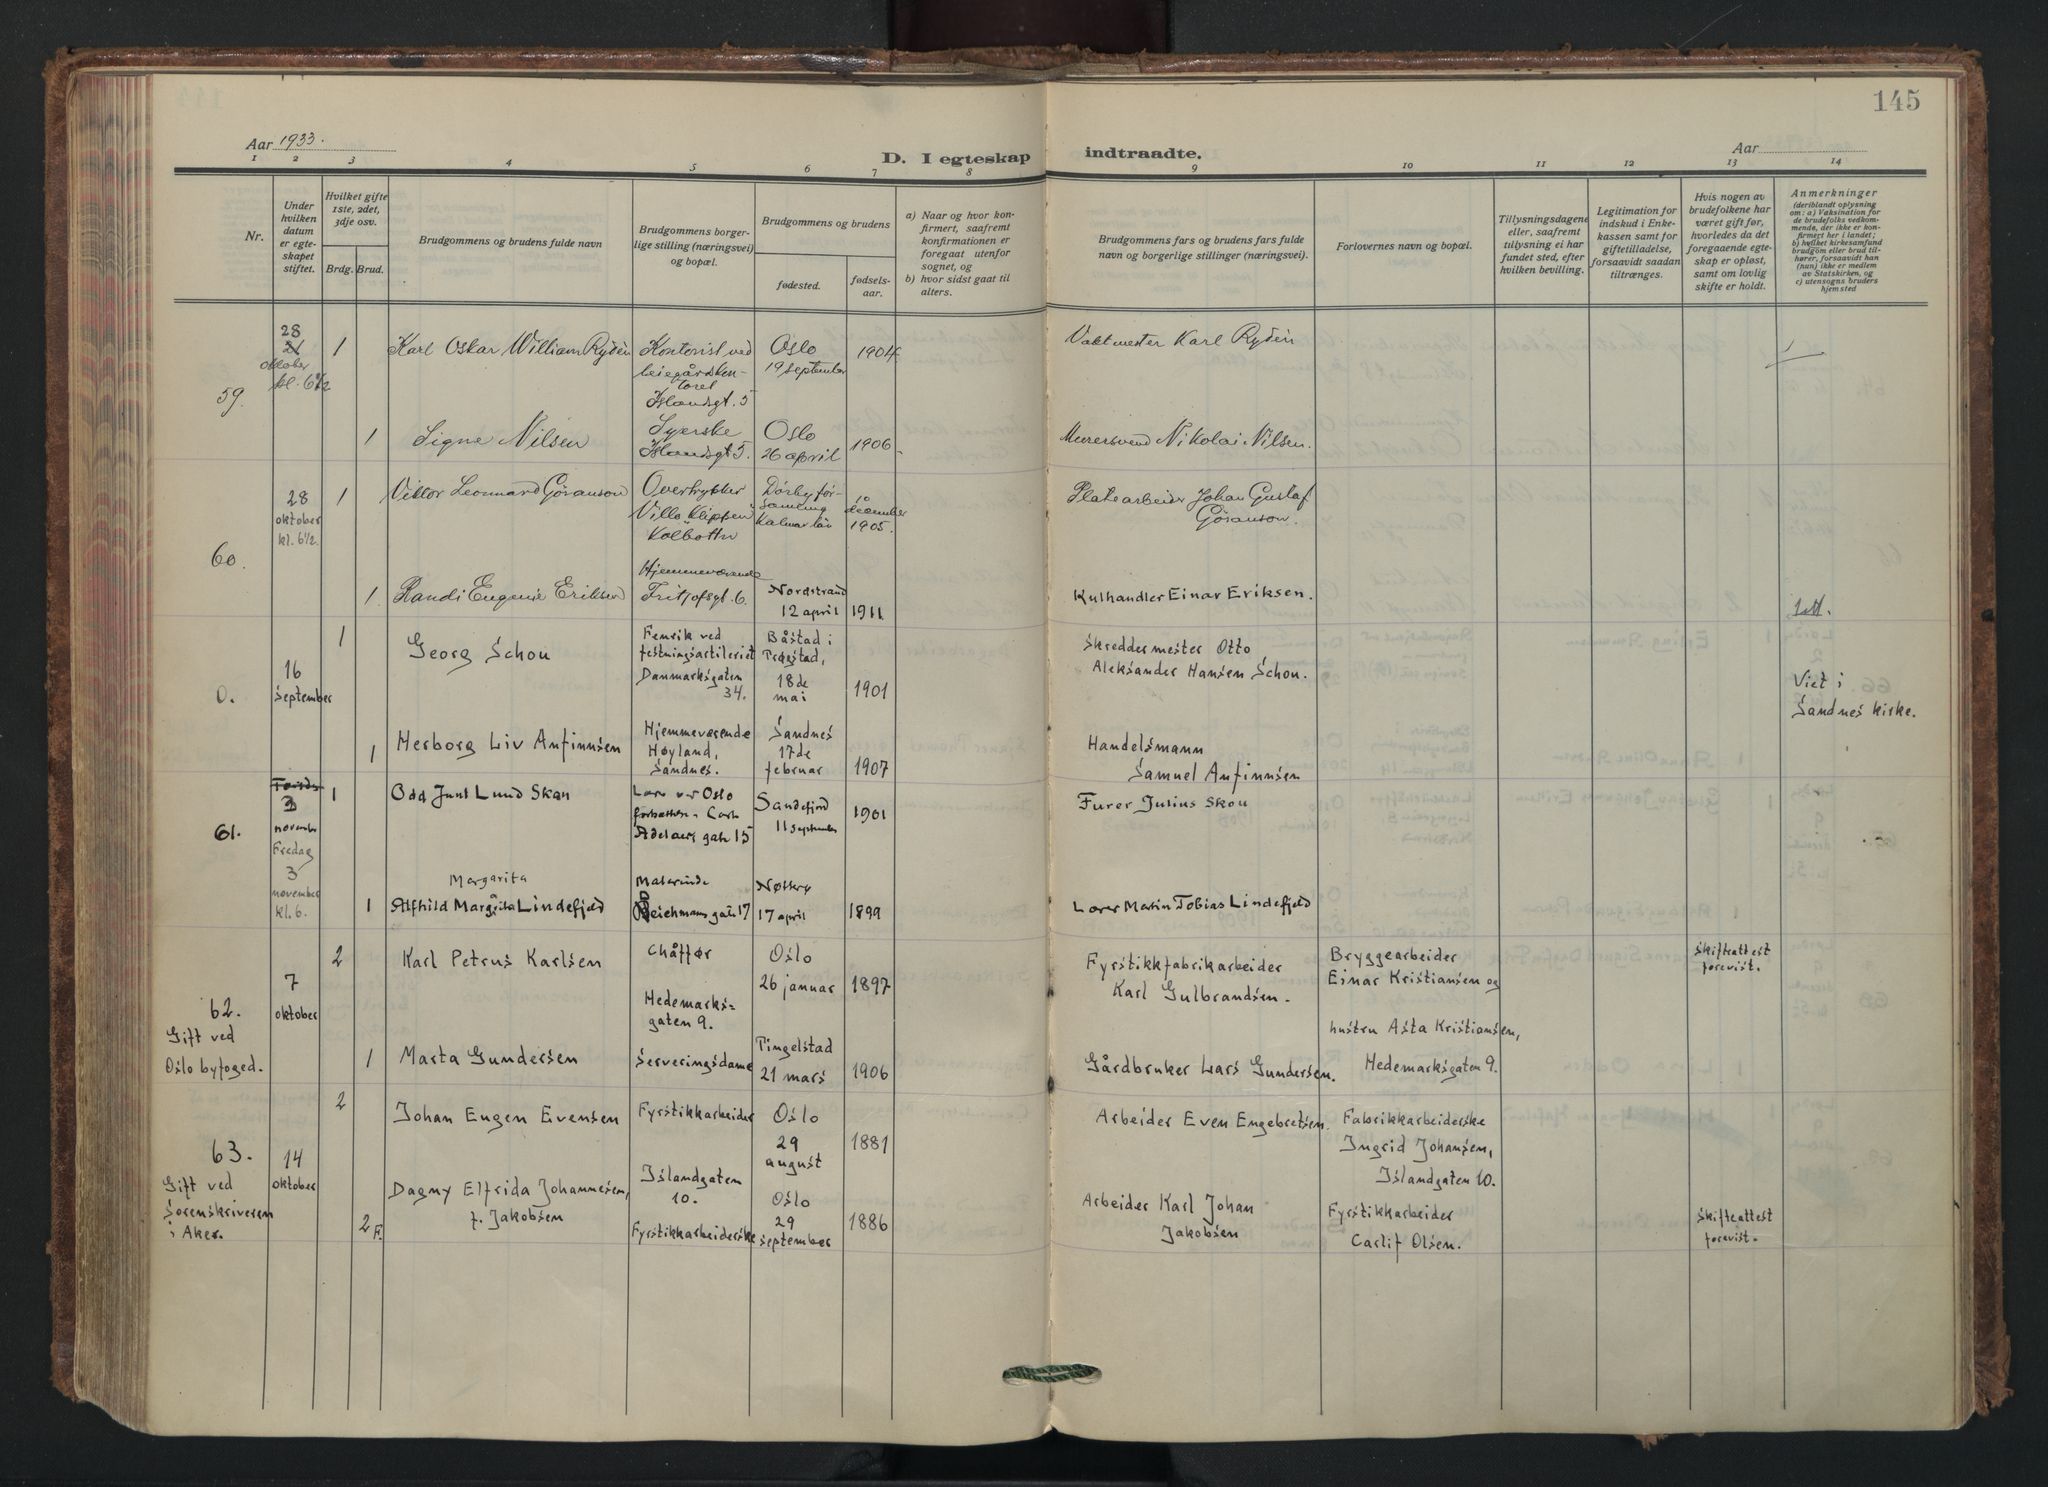 145
Aar 1933.
D. I egteskap indtraadte.
Aar
1 2 3 4 5 6 7 8 9 10 11 12 13 14
Nr.
Under hvilken datum er egteskapet stiftet.
Hvilket gifte 1ste, 2det, 3dje osv.
Brdg. Brud.
Brudgommens og brudens fulde navn
Brudgommens borgerlige stilling (næringsvei) og bopæl.
Brudgommens og brudens
fødested.
fødselsaar.
a) Naar og hvor konfirmert, saafremt konfirmationen er foregaat utenfor sognet, og
b) hvor sidst gaat til alters.
Brudgommens fars og brudens fars fulde navn og borgerlige stillinger (næringsvei).
Forlovernes navn og bopæl.
Tillysningsdagene eller, saafremt tillysning ei har fundet sted, efter hvilken bevilling.
Legitimation for indskud i Enkekassen samt for giftetilladelse, forsaavidt saadan tiltrænges.
Hvis nogen av brudefolkene har været gift før, hvorledes da det foregaaende egteskap er opløst, samt om lovlig skifte er holdt.
Anmerkninger
(deriblandt oplysning om: a) Vaksination for de brudefolks vedkommende, der ikke er konfirmert her i landet; b) hvilket kirkesamfund brudgom eller brud tilhører, forsaavidt han (hun) ikke er medlem av Statskirken, og c) utensogns bruders hjemsted
59.
28
21
oktober
kl. 6½
1
Karl Oskar William Rydén
Kontorist ved
leiegårdskon-
toret
Islandsgt. 5
Oslo
19 september
1904
Vaktmester Karl Rydén
1
Signe Nilsen
Syerske
Islandsgt 5.
Oslo
26 april
1906
Murersvend Nikolai Nilsen.
60.
28
oktober
kl. 6½.
1
Viktor Leonnard Göranson
Overtrykker
Villa Klipsen
Kolbotn
Dörby för-
samling
Kalmar län
10
december
1905.
Platearbeider Johan Gustaf
Göranson.
1
Randi Eugenie Eriksen
Hjemmeværende
Fritjofsgt. 6.
Nordstrand
12 april
1911
Kulhandler Einar Eriksen.
0.
16
september
1
Georg Schou
Fenrik ved
festningsartileriet
Danmarksgaten
34.
Båstad i
Trøgstad,
18de
mai
1901
Skreddermester Otto
Aleksander Hansen Schou.
Viet i
Sandnes kirke.
1
Herborg Liv Anfinnsen
Hjemmeværende
Høyland,
Sandnes.
Sandnes
17de
februar
1907
Handelsmann
Samuel Anfinnsen
61.
3
november
Fredag
3
november
kl. 6.
1
Odd Juul Lund Skau
Adelaers gate 15
Sandefjord
11 september
1901
Furer Julius Skou
1
Margarita
Alfhild Margarita Lindefjeld
Deichmans gate 17
Nøtterø
17 april
1899
Lærer Martin Tobias Lindefjeld
62.
Gift ved
Oslo byfoged.
7
oktober
2
Karl Petrus Karlsen
Chåffør
Hedemarks-
gaten 9.
Oslo
26 januar
1897
Fyrstikkfabrikarbeider
Karl Gulbrandsen.
Bryggearbeider
Einar Kristiansen og
hustru Asta Kristiansen,
Hedemarksgaten 9.
skifteattest
forevist.
1
Marta Gundersen
Serveringsdame
Tingelstad
21 mars
1906
Gårdbruker Lars Gundersen.
63.
Gift ved
Sorenskriveren
i Aker.
14
oktober
2
Johan Eugen Evensen
Fyrstikkarbeider
Islandgaten
10.
Oslo
29
august
1881
Arbeider Even Engebretsen.
Fabrikkarbeiderske
Ingrid Johansen,
Islandgaten 10.
2 F.
Dagny Elfrida Johannesen,
f. Jakobsen
Fyrstikkarbeiderske
Oslo
29
september
1886
Arbeider Karl Johan
Jakobsen
Fyrstikkarbeider
Carlif Olsen.
Skifteattest
forevist.